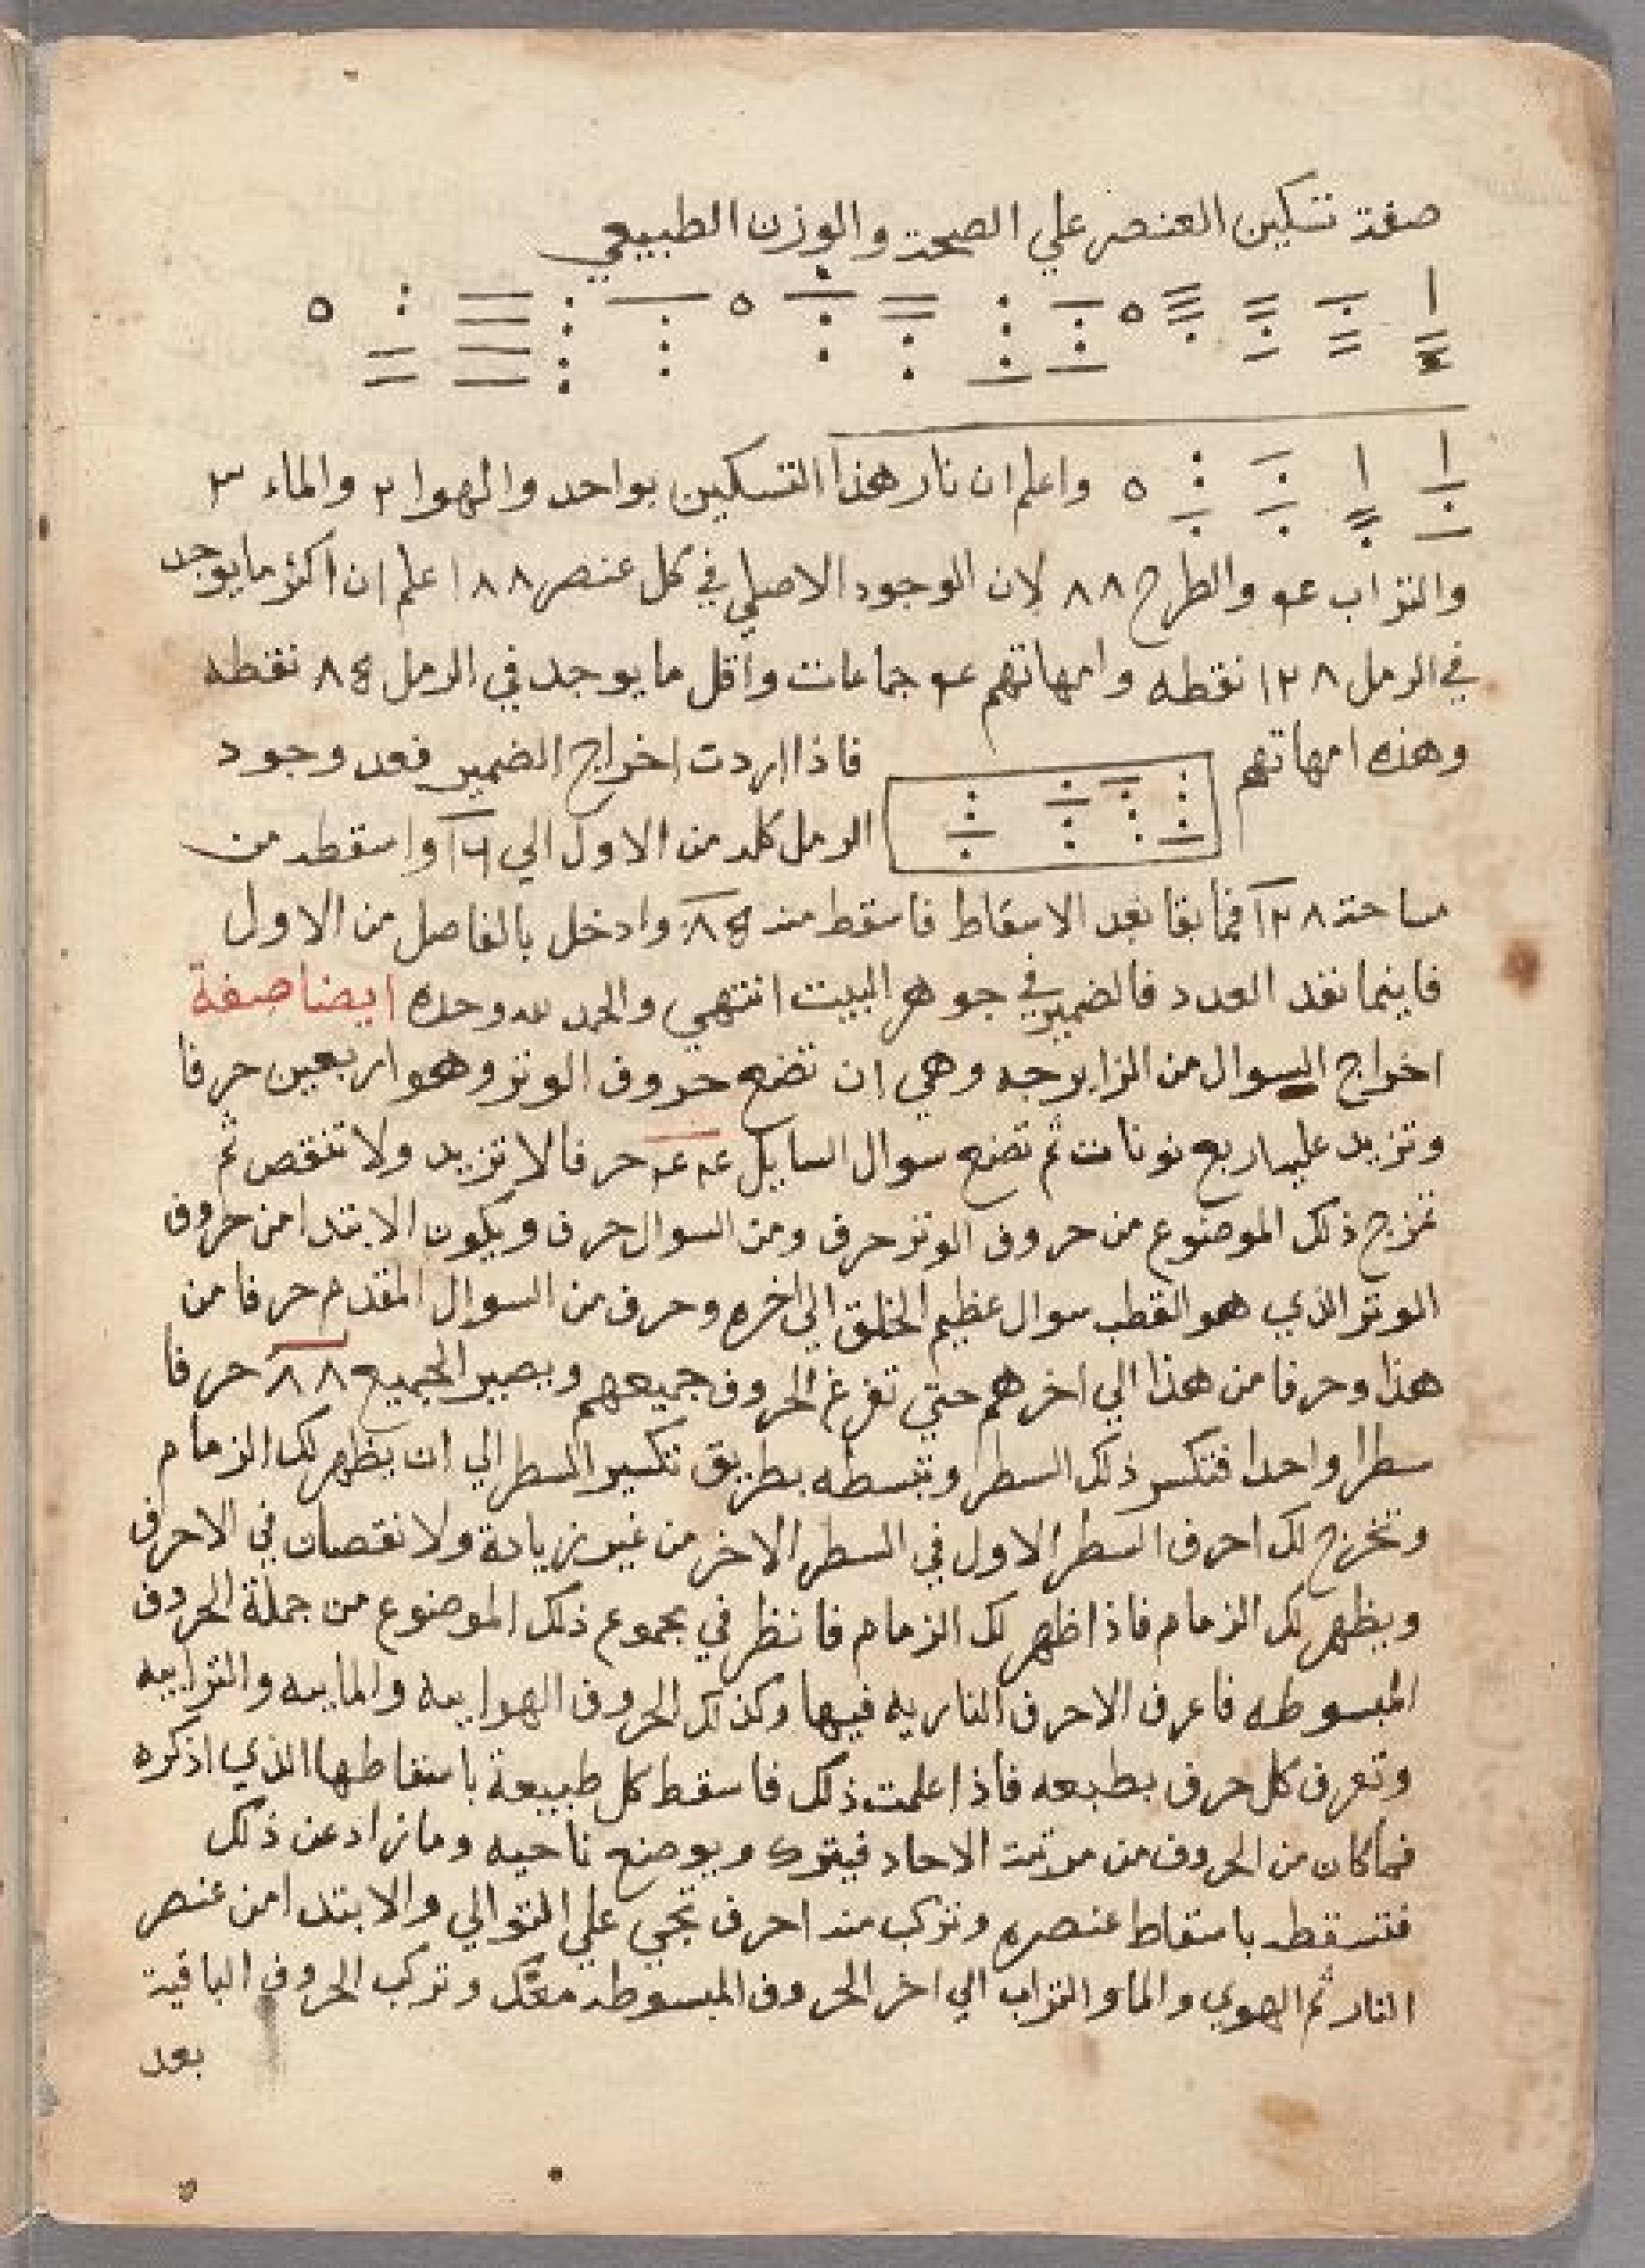 صفة تسكين العنصر علي الصحة والوزن الطبيعي
واعلم ان نار هذا التسكين بواحد والهوا ٢ والماء ٣
والتراب عو والطرح ٨٨ لان الوجود الاصلي في كل عنصر ٨٨ اعلم ان اكثر ما يوجد
في الرمل ١٢٨ نقطه وامهاتهم عو جماعات واقل ما يوجد في الرمل ٨٤ نقطه
وهذه امهاتهم فاذا اردت اخراج الضمير فعد وجود
الرمل كله من الاول الي ١٦ واسقطه من
مساحة ١٢٨ فما بقا بعد الاسقاط فاسقط منه ٨٤ وادخل بالفاصل من الاول
فاينما نفد العدد فالضمير في جوهر البيت انتهي والحمد لله وحده ايضا صفة
اخراج السوال من الزايرجه وهي ان تضع حروف الوتر وهو اربعين حرفا
وتزيد عليه اربع نونات ثم تضع سوال السايل عوعو حرفا لا تزيد ولا تنقص ثم
تمزج ذلك الموضوع من حروف الوتر حرف ومن السوال حرف ويكون الابتدا من حروف
الوتر الذي هو القطب سوال عظيم الخلق الي اخره وحرف من السوال المقدم حرفا من
هذا وحرفا من هذا الي اخرهم حتي تفرغ الحروف جميعهم ويصير الجميع ٨٨ حرفا
سطرا واحدا فتكسر ذلك السطر وتبسطه بطريق تكسير السطر الي ان يظهر لك الزمام
وتخرج لك احرف السطر الاول في السطر الاخر من غير زيادة ولا نقصان في الاحرف
ويظهر لك الزمام فاذا ظهر لك الزمام فانظر في مجموع ذلك الموضوع من جملة الحروف
المبسوطه فاعرف الاحرف الناريه فيها وكذلك الحروف الهواييه والماييه والترابيه
وتعرف كل حرف بطبعه فاذا علمت ذلك فاسقط كل طبيعة باسقاطها الذي اذكره
فما كان من الحروف من مرتبة الاحاد فيترك ويوضع ناحيه وما زاد عن ذلك
فتسقطه باسقاط عنصره وتركب منه احرف تجي علي التوالي والابتدا من عنصر
النار ثم الهوي والما والتراب الي اخر الحروف المبسوطه معك وتركب الحروف الباقية
بعد